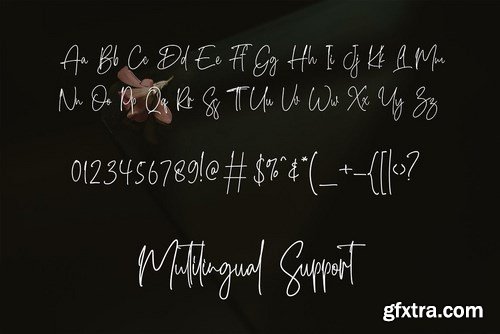 Aa Bb Cc Dd Ee Ff Gg Hh Ii Jj Kk Ll Mm
Nn Oo Pp Qq Rr Ss Tt Uu Vv Ww Xx Yy Zz
0123456789!@#$%^&*(_+-{[|<>?
Multilingual Support
gfxtra.com